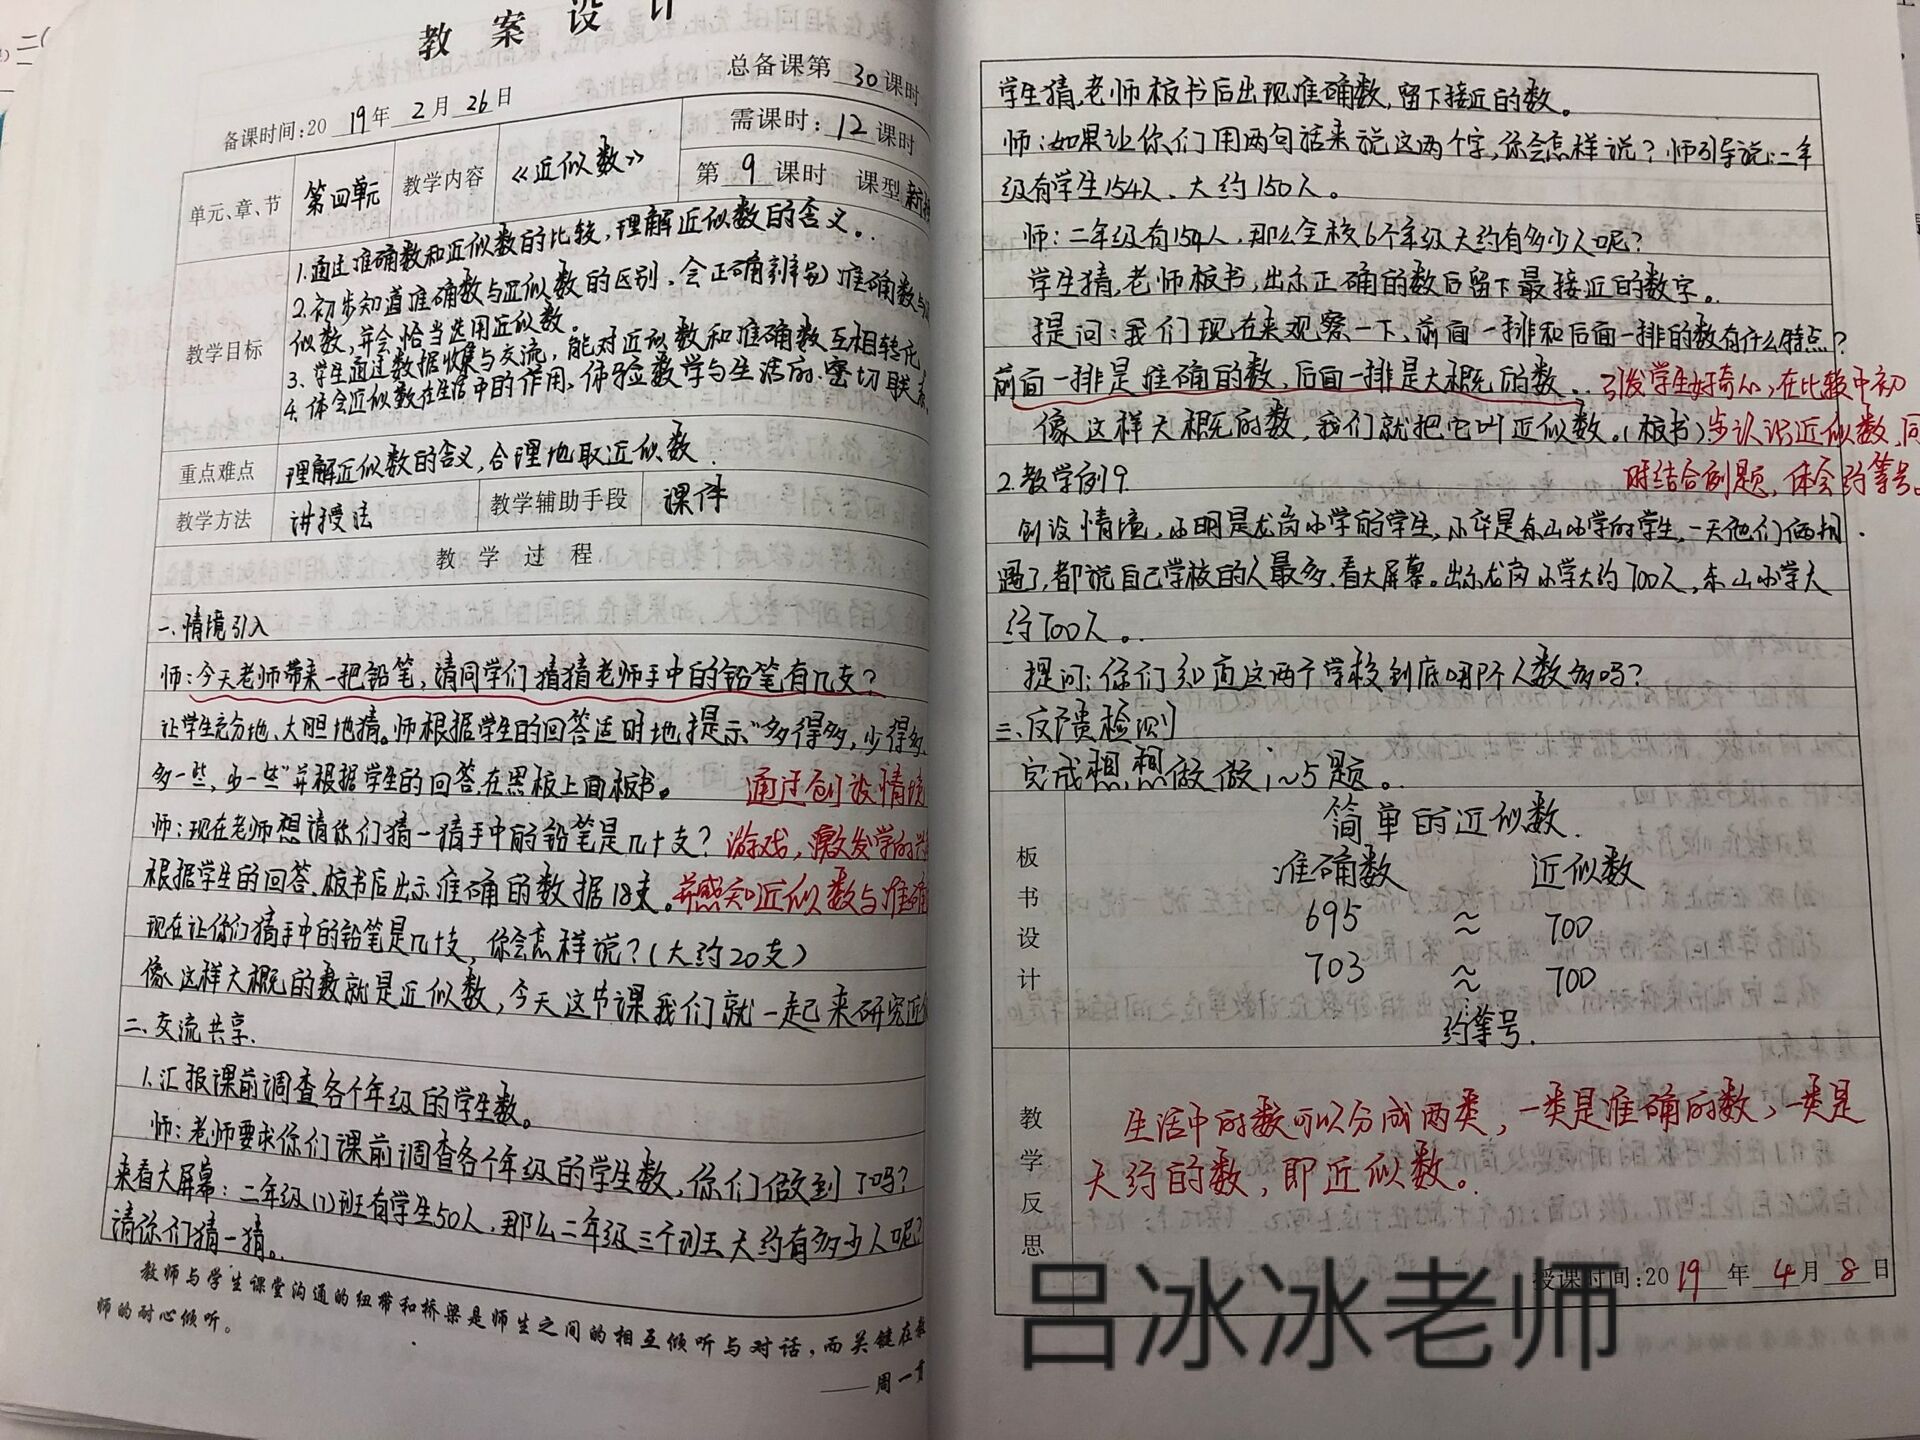 教案设计
总备课第 30 课时
备课时间:20 19 年 2 月 26 日
单元、章、节
第四单元
教学内容
《近似数》
需课时: 12 课时
第 9 课时 课型
教学目标
1.通过准确数和近似数的比较,理解近似数的含义。
2.初步知道准确数与近似数的区别,会正确辨别准确数与
似数,并会恰当选用近似数。
3、学生通过数据收集与交流,能对近似数和准确数互相转化
4.体会近似数在生活中的作用,体验数学与生活的密切联系
重点难点
理解近似数的含义,合理地取近似数.
教学方法
讲授法
教学辅助手段
课件
教学过程
一、情境引入
师:今天老师带来一把铅笔,请同学们猜猜老师手中的铅笔有几支?
让学生充分地、大胆地猜。师根据学生的回答适时地提示"多得多,少得多、
多一些,少一些"并根据学生的回答在黑板上面板书。
通过创设情境
师:现在老师想请你们猜一猜手中的铅笔是几十支?
游戏,激发学的
根据学生的回答,板书后出示准确的数据18支。
并感知近似数与准确
现在让你们猜手中的铅笔是几十支,你会怎样说?(大约20支)
像这样大概的数就是近似数,今天这节课我们就一起来研究近似
二、交流共享.
1.汇报课前调查各个年级的学生数。
师:老师要求你们课前调查各个年级的学生数,你们做到了吗?
来看大屏幕:二年级(1)班有学生50人,那么二年级三个班大约有多少人呢?
请你们猜一猜。
教师与学生课堂沟通的纽带和桥梁是师生之间的相互倾听与对话,而关键在教
师的耐心倾听。
——周一贯
学生猜,老师板书后出现准确数,留下接近的数。
师:如果让你们用两句话来说这两个字,你会怎样说?师引导说:二年
级有学生154人,大约150人。
师:二年级有154人,那么全校6个年级大约有多少人呢?
学生猜,老师板书,出示正确的数后留下最接近的数字。
提问:我们现在来观察一下,前面一排和后面一排的数有什么特点?
前面一排是准确的数,后面一排是大概的数。
引发学生好奇心,在比较中初
像这样大概的数,我们就把它叫近似数。(板书)
步认识近似数,同
2.教学例9.
时结合例题,体会约等号。
创设情境,小明是龙岗小学的学生,小华是东山小学的学生,一天他们俩相
遇了,都说自己学校的人最多,看大屏幕。出示龙岗小学大约700人,东山小学大
约700人。
提问:你们知道这两个学校到底哪个人数多吗?
三、反馈检测
完成想想做做1~5题。
板书设计
简单的近似数.
准确数 近似数
695 ≈ 700
703 ≈ 700
约等号.
教学反思
生活中的数可以分成两类,一类是准确的数,一类是
大约的数,即近似数。
授课时间:20 19 年 4 月 8 日
吕冰冰老师